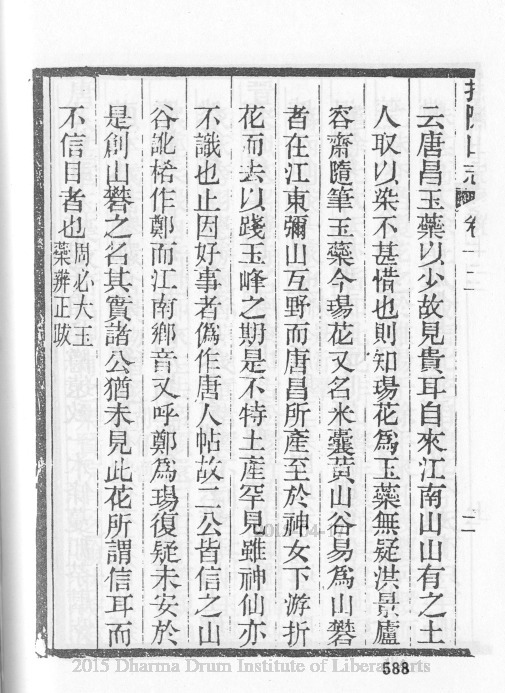 招隱山志 卷十二 二
云唐昌玉蘂以少故見貴耳自來江南山山有之土
人取以染不甚惜也則知瑒花爲玉蘂無疑洪景廬
容齋隨筆玉蘂今瑒花又名米囊黃山谷易爲山礬
者在江東彌山亙野而唐昌所產至於神女下游折
花而去以踐玉峰之期是不特土產罕見雖神仙亦
不識也止因好事者僞作唐人帖故二公皆信之山
谷訛楮作鄭而江南鄉音又呼鄭爲瑒復疑未安於
是創山礬之名其實諸公猶未見此花所謂信耳而
不信目者也周必大玉
蘂辨正跋
2015 Dharma Drum Institute of Liberal Arts
588